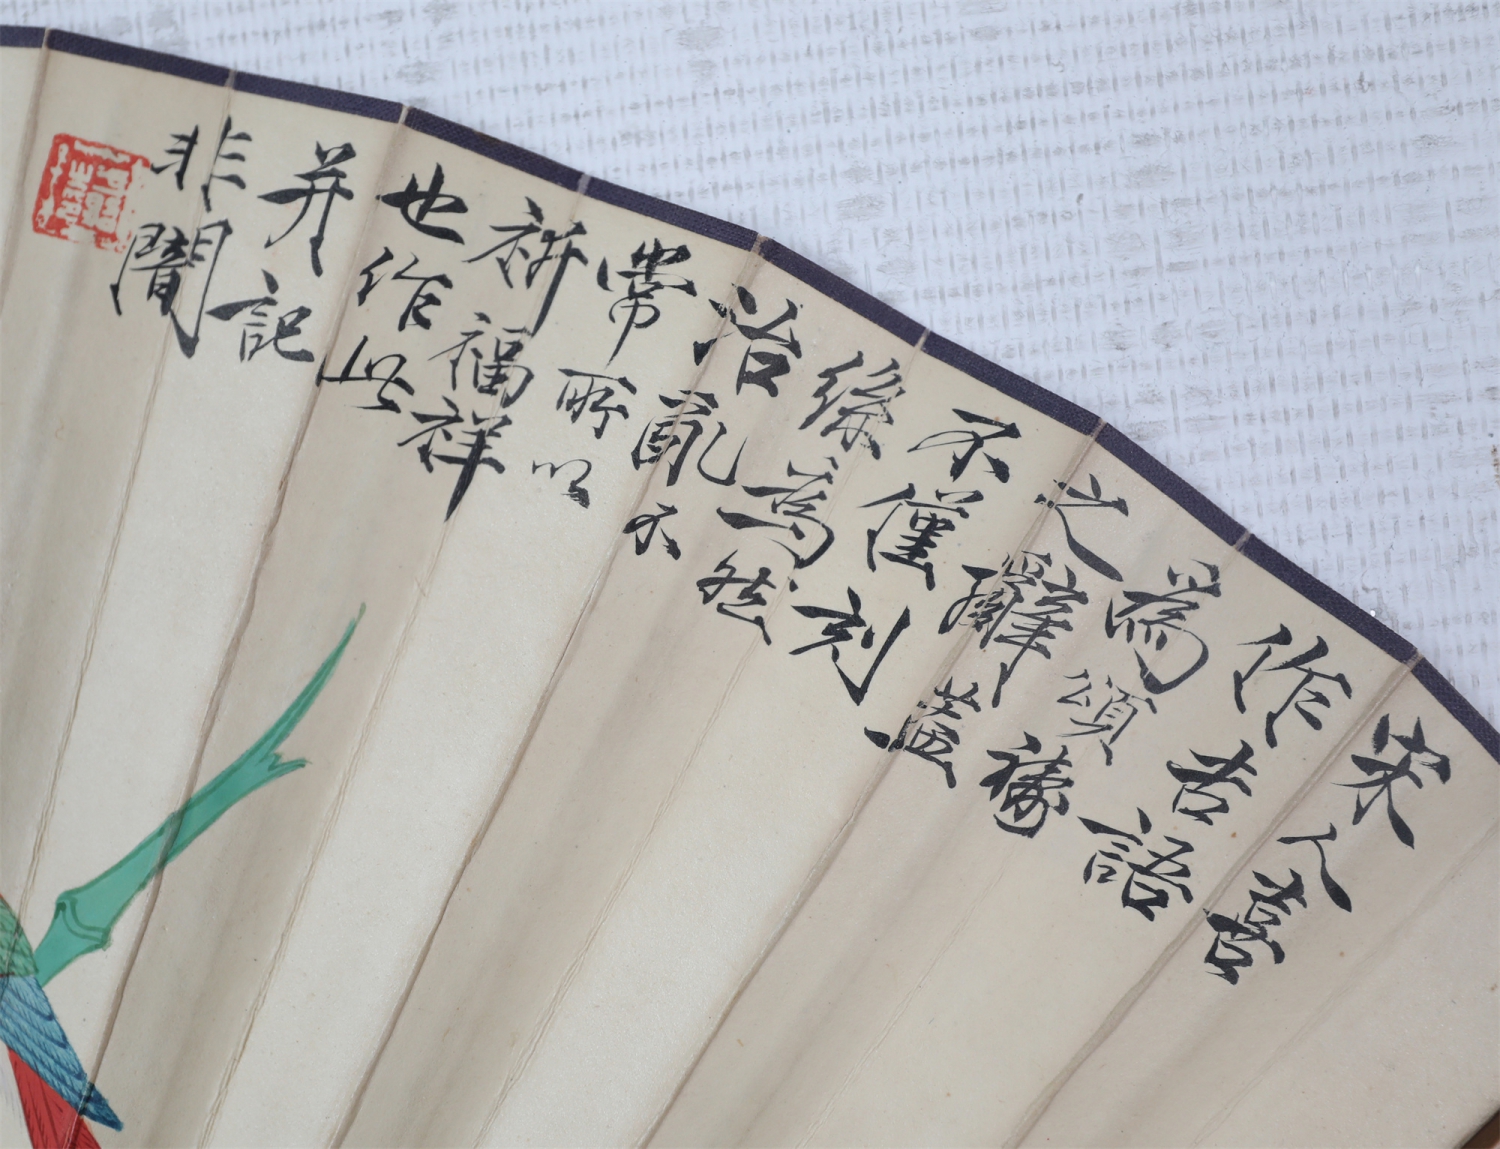 宋人喜
作吉語
為頌禱
之辭蓋
不僅刻
絲為然
治亂不
常所以
祈福祥
也作此
并記
非闇